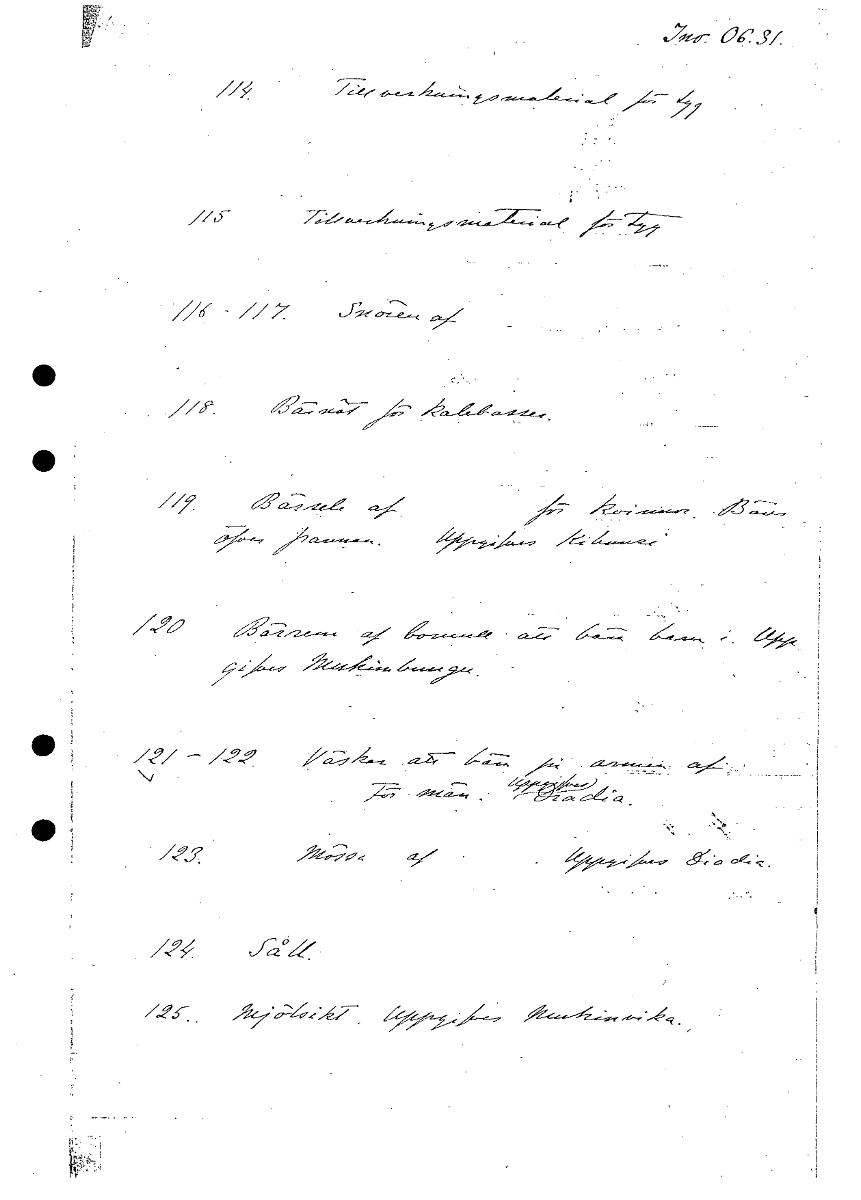 Inv. 06.31.
114. Tillverkningsmaterial för tyg
115 Tillverkningsmaterial för tyg
116 - 117. Snören af
118. Bärnät för kalebasser.
119. Bärsele af för kvinnor. Bäres
öfver pannan. Uppgifves Kibunsi
120 Bärrem af bomull att bära barn i. Upp
gifves Mukimbungu.
121 - 122. Väskor att bära på armen af
För män. Uppgifves Diadia.
123. Mössa af Uppgifves Diadia.
124. Såll.
125. Mjölsikt. Uppgifves Mukinvika.